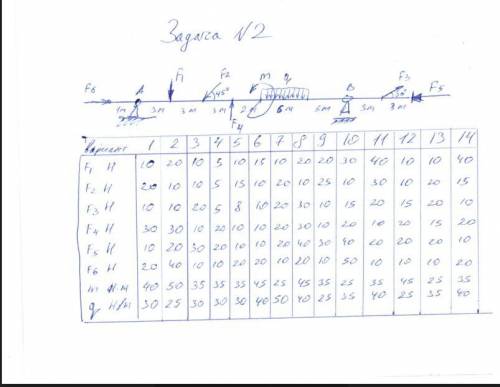 Задача N2
F1 F2 M q F3
F6 A 45° B F5
1m 3m 3m 2m 6m 3m
F4
Вариант 1 2 3 4 5 6 7 8 9 10 11 12 13 14
F1 Н 10 20 10 5 10 15 10 20 20 30 40 10 10 40
F2 Н 20 10 10 5 15 10 20 10 25 10 30 10 20 15
F3 Н 10 10 20 5 8 10 20 30 10 15 20 15 20 10
F4 Н 30 30 10 20 10 10 20 30 10 20 10 20 15 20
F5 Н 10 20 30 20 10 10 20 40 30 40 20 20 20 10
F6 Н 20 40 10 10 20 20 10 20 10 50 10 10 10 20
m Н·м 40 50 35 35 35 45 25 45 35 25 35 45 25 35
q Н/м 30 25 30 30 30 40 50 40 25 35 40 25 35 40